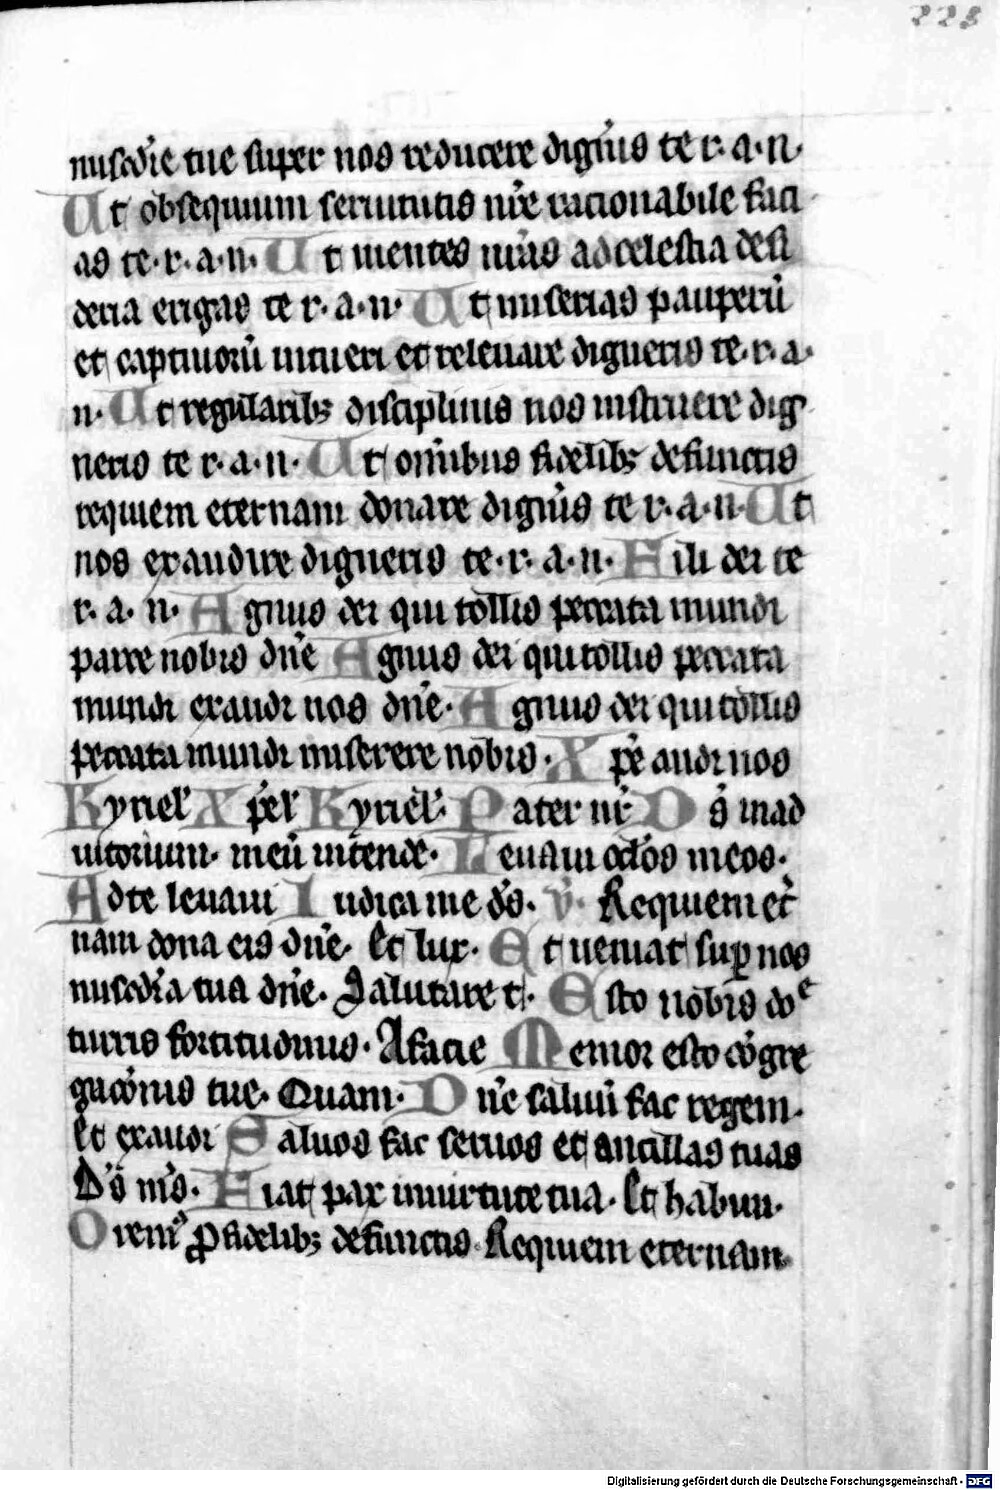 223
miſcdīe tue ſuper nos reducere dignīs te r. a. n.
Ut obſequium ſeruitutis nr̄e racionabile faci
as te. r. a. n. Ut mentes nr̄as ad celeſtia deſi
deria erigas te r. a. n. Ut miſerias pauperū
et captiuorū intueri et releuare digneris te. r. a.
n. Ut regularibꝫ diſciplinis nos inſtruere dig
neris te r. a. n. Ut om̄ibus fidelibꝫ defunctis
requiem eternam donare dignīs te r. a. n. Ut
nos exaudire digneris te. r. a. n. Fili dei te
r. a. n. Agnus dei qui tollis peccata mundi
parce nobis dn̄e Agnus dei qui tollis peccata
mundi exaudi nos dn̄e. Agnus dei qui tollis
peccata mundi miſerere nobis. Xp̄e audi nos
Kyriel̄ Xp̄el̄ Kyriel̄. Pater nr̄ Ds̄ in ad
iutorium. meū intende. Leuaui oc̄los meos.
Ad te leuaui Iudica me ds̄. v̄. Requiem et̄
nam dona eis dn̄e. Et lux. Et ueniat ſuꝑ nos
miſcdīa tua dn̄e. Salutare t. Eſto nobis doᵉ
turris fortitudinis. A facie Memor eſto cōgre
gacōnis tue. Quam. Dn̄e ſaluū fac regem.
Et exaudi Saluos fac ſeruos et ancillas tuas
Ds̄ ms̄. Fiat pax in uirtute tua. Et habun.
Oremꝰ ꝓ fidelibꝫ defunctis. Requiem eternam
Digitalisierung gefördert durch die Deutsche Forschungsgemeinschaft - DFG